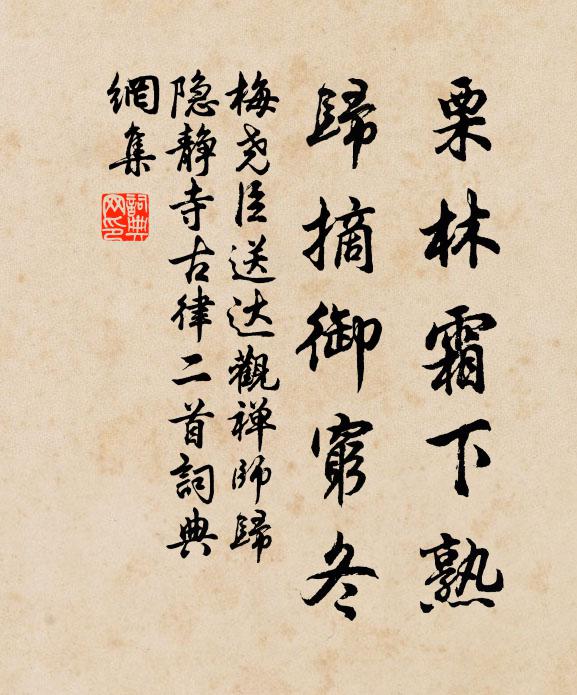 栗林霜下熟
歸摘御窮冬
梅尧臣送达觀禅师歸
隐静寺古律二首詞典
網集
詞典網印